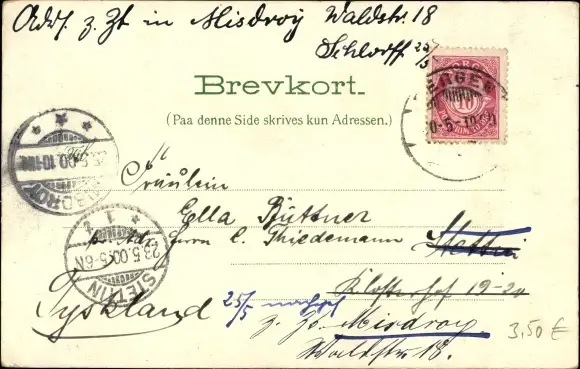 Adr. z. Zt in Misdroy Waldstr. 18
Schlorff 25/5
NORGE
BERGEN
10
Brevkort.
(Paa denne Side skrives kun Adressen.)
MISDROY
Fräulein
Ella Büttner
p. Adr. Herrn C. Thiedemann Stettin
STETTIN
23.5.00.5-6N
Klosterhof 19-20
Tyskland
25/5
z. Zt. Misdroy
Waldstr. 18.
3,50 €